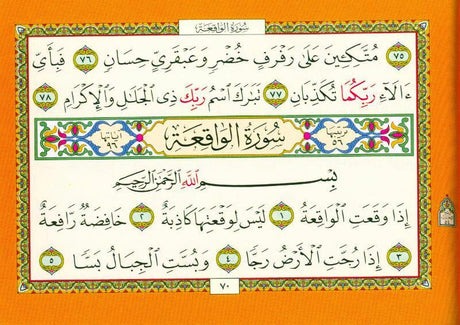 سورة الواقعة
٧٥ مُتَّكِـِٔينَ عَلَىٰ رَفْرَفٍ خُضْرٍ وَعَبْقَرِيٍّ حِسَانٍ ٧٦ فَبِأَىِّ
ءَالَآءِ رَبِّكُمَا تُكَذِّبَانِ ٧٧ تَبَٰرَكَ ٱسْمُ رَبِّكَ ذِى ٱلْجَلَٰلِ وَٱلْإِكْرَامِ ٧٨
ترتيبها ٥٦ سُورَةُ الوَاقِعَةِ آياتها ٩٦
بِسْمِ ٱللَّهِ ٱلرَّحْمَٰنِ ٱلرَّحِيمِ
إِذَا وَقَعَتِ ٱلْوَاقِعَةُ ١ لَيْسَ لِوَقْعَتِهَا كَاذِبَةٌ ٢ خَافِضَةٌ رَّافِعَةٌ
٣ إِذَا رُجَّتِ ٱلْأَرْضُ رَجًّا ٤ وَبُسَّتِ ٱلْجِبَالُ بَسًّا ٥
٧٠